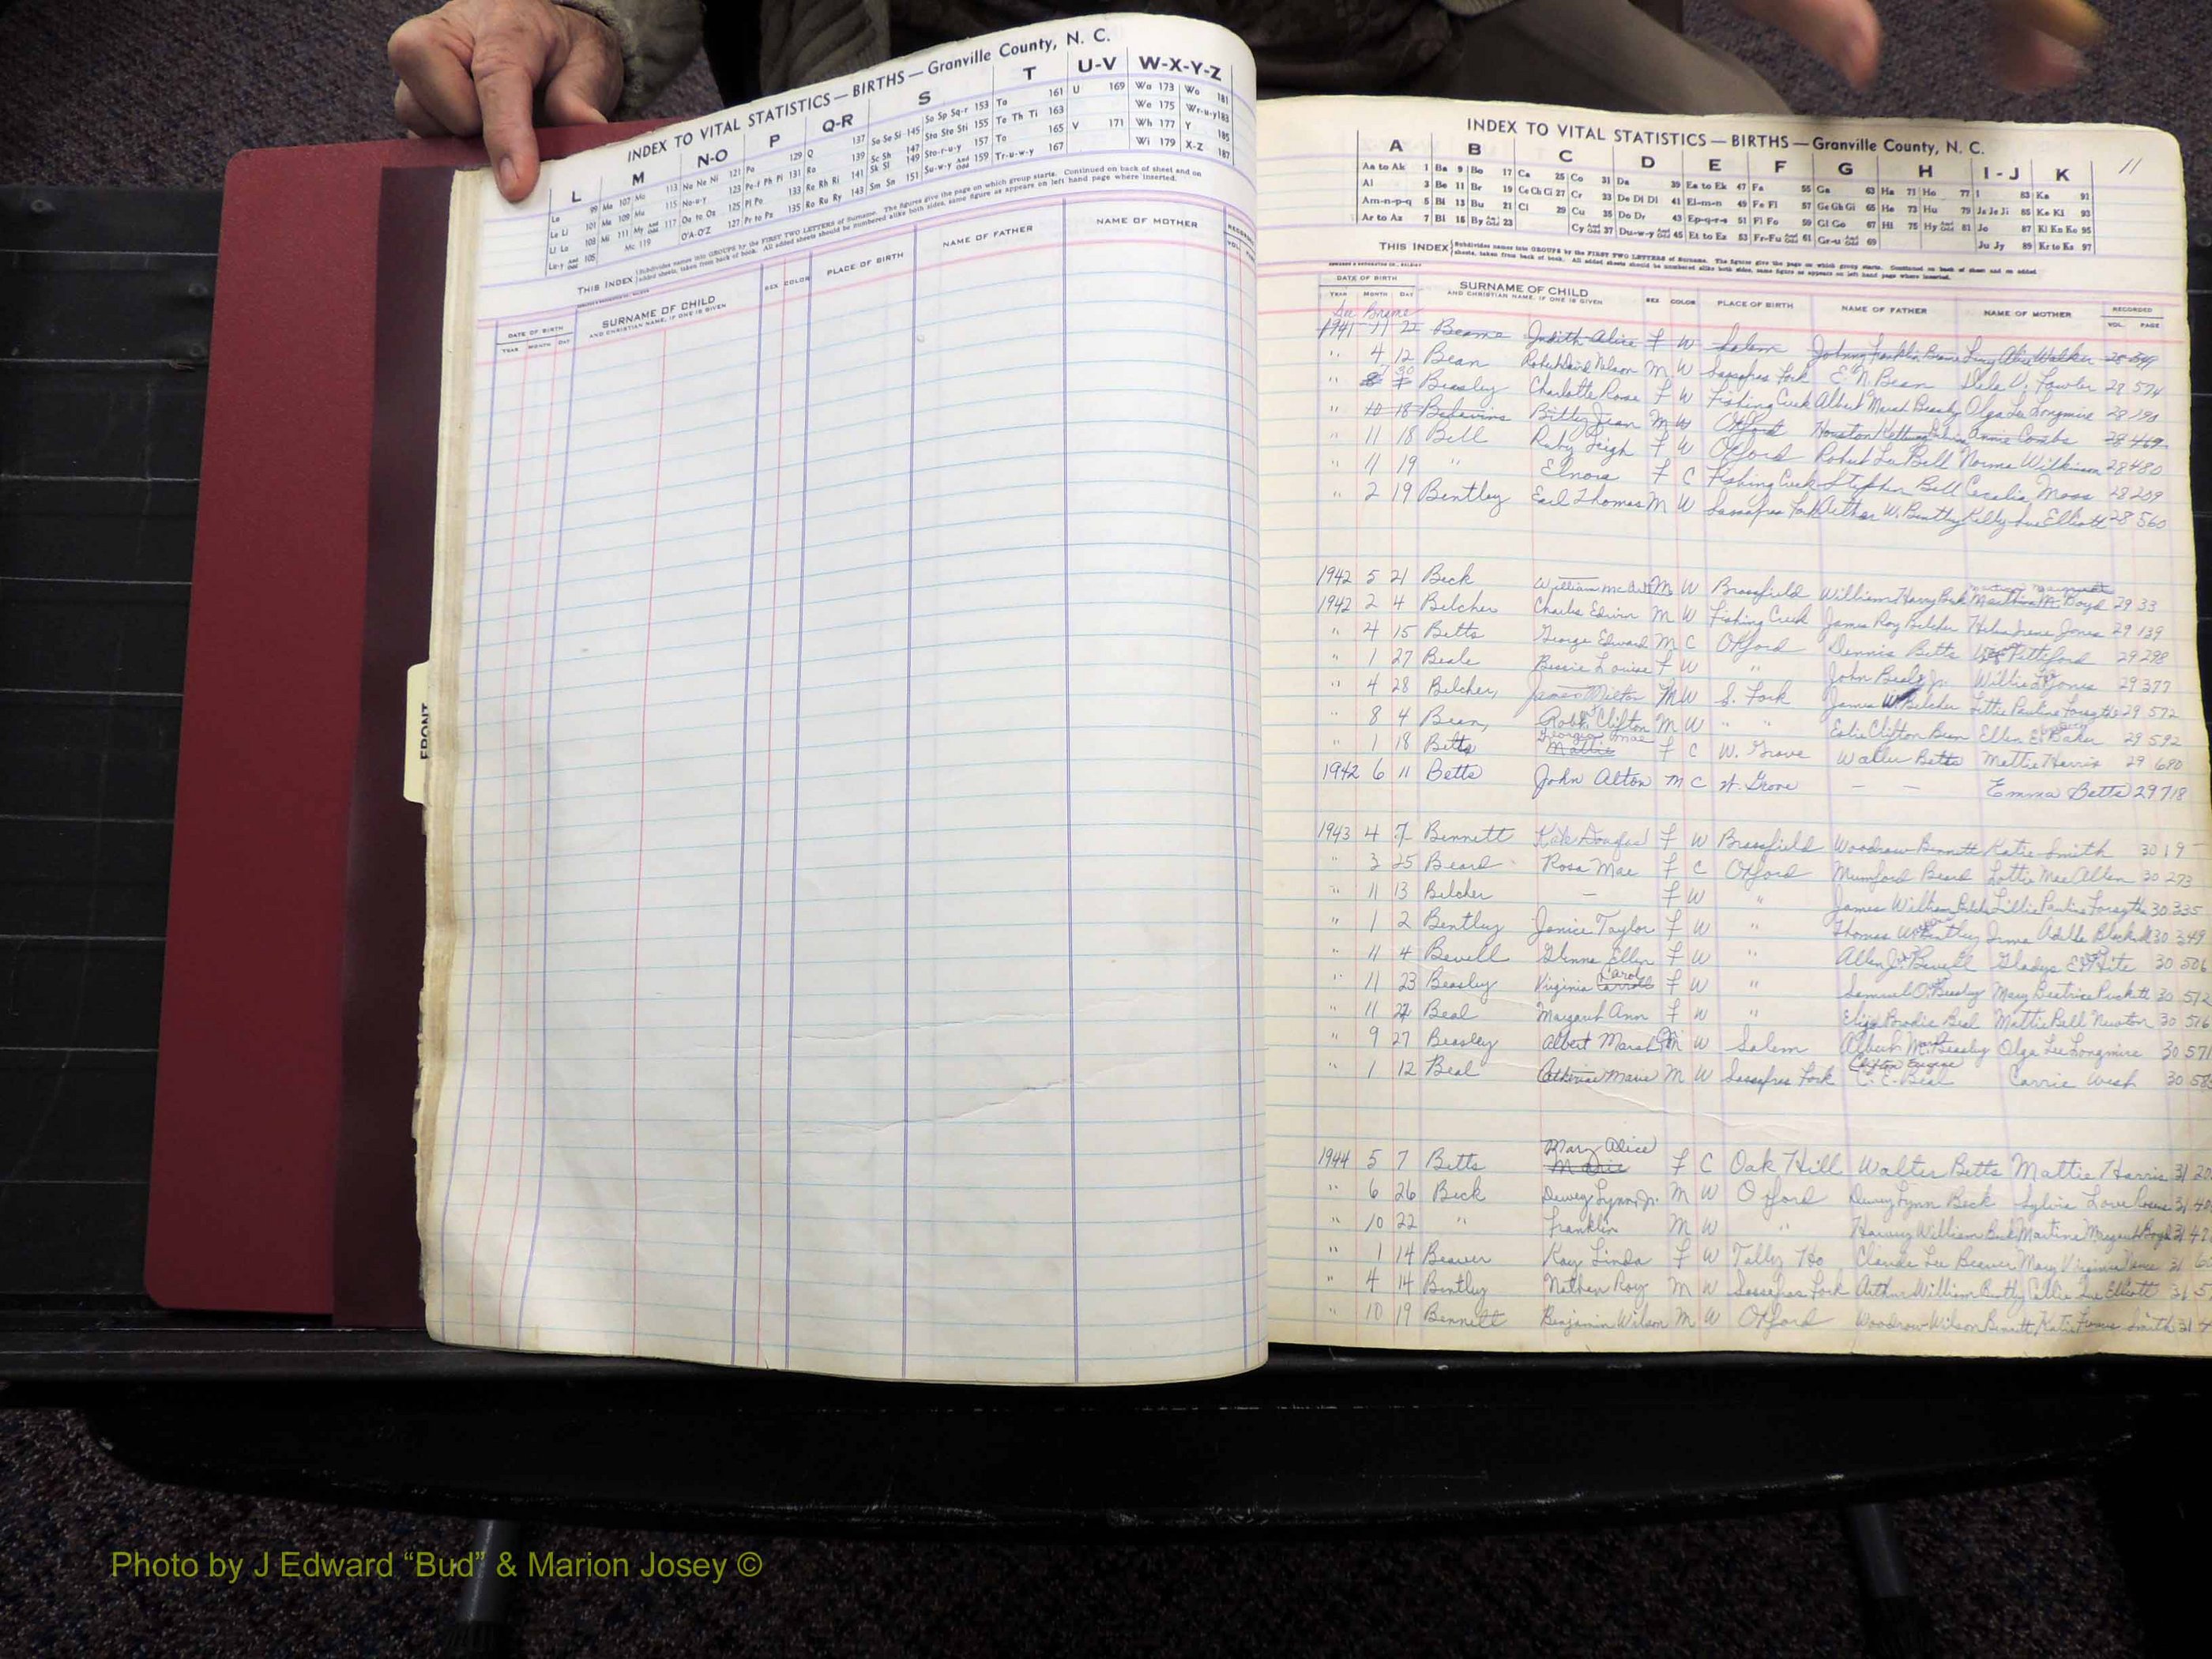 INDEX TO VITAL STATISTICS — BIRTHS — Granville County, N. C.
L M N-O P Q-R S T U-V W-X-Y-Z
La 99 Ma 107 Mc 113 Na Ne Ni 121 Pa 129 Q 137 Sa Se Si 145 So Sp Sq-r 153 Ta 161 U 169 Wa 173 Wo 181
Le Li 101 Me 109 Mo 115 No-u-y 123 Pe-f Ph Pi 131 Ra 139 Sc Sh 147 Sta Ste Sti 155 Te Th Ti 163 We 175 Wr-u-y 183
Ll Lo 103 Mi 111 My And Odd 117 Oa to Oz 125 Pl Po 133 Re Rh Ri 141 Sk Sl 149 Sto-r-u-y 157 To 165 V 171 Wh 177 Y 185
Lu-y And Odd 105 Mc 119 O'A-O'Z 127 Pr to Pz 135 Ro Ru Ry 143 Sm Sn 151 Su-w-y And Odd 159 Tr-u-w-y 167 Wi 179 X-Z 187
THIS INDEX Subdivides names into GROUPS by the FIRST TWO LETTERS of Surname. The figures give the page on which group starts. Continued on back of sheet and on
added sheets, taken from back of book. All added sheets should be numbered alike both sides, same figure as appears on left hand page where inserted.
DATE OF BIRTH SURNAME OF CHILD SEX COLOR PLACE OF BIRTH NAME OF FATHER NAME OF MOTHER RECORDED
YEAR MONTH DAY AND CHRISTIAN NAME, IF ONE IS GIVEN VOL.
FRONT
INDEX TO VITAL STATISTICS — BIRTHS — Granville County, N. C.
11
A B C D E F G H I - J K
Aa to Ak 1 Ba 9 Bo 17 Ca 25 Co 31 Da 39 Ea to Ek 47 Fa 55 Ga 63 Ha 71 Ho 77 I 83 Ka 91
Al 3 Be 11 Br 19 Ce Ch Ci 27 Cr 33 De Di Dl 41 El-m-n 49 Fe Fi 57 Ge Gh Gi 65 He 73 Hu 79 Ja Je Ji 85 Ke Kl 93
Am-n-p-q 5 Bi 13 Bu 21 Cl 29 Cu 35 Do Dr 43 Ep-q-r-s 51 Fl Fo 59 Gl Go 67 Hi 75 Hy And Odd 81 Jo 87 Ki Kn Ko 95
Ar to Az 7 Bl 15 By And Odd 23 Cy And Odd 37 Du-w-y And Odd 45 Et to Ez 53 Fr-Fu And Odd 61 Gr-u And Odd 69 Ju Jy 89 Kr to Kz 97
THIS INDEX Subdivides names into GROUPS by the FIRST TWO LETTERS of Surname. The figures give the page on which group starts. Continued on back of sheet and on added
sheets, taken from back of book. All added sheets should be numbered alike both sides, same figure as appears on left hand page where inserted.
DATE OF BIRTH SURNAME OF CHILD SEX COLOR PLACE OF BIRTH NAME OF FATHER NAME OF MOTHER RECORDED
YEAR MONTH DAY AND CHRISTIAN NAME, IF ONE IS GIVEN VOL. PAGE
See Brame
1941 11 Beame Judith Alice F W Salem Johnny Franklin Brame Lucy Alice Walker 28
" 4 12 Bean Robert David Nelson M W Sassafras Fork E. N. Bean Dela V. Fowler 28 574
" 7 30 Beasley Charlotte Rose F W Fishing Creek Albert Marsh Beasley Olga Lee Longmire 28 190
" 10 18 Billy Jean M W Oxford Houston Annie Combs 28 469
" 11 18 Bell Ruby Leigh F W Oxford Robert Lee Bell Norma Wilkinson 28 480
" 11 19 " Elnora F C Fishing Creek Stephen Bell Cecelia Moss 28 209
" 2 19 Bentley Earl Thomas M W Sassafras Fork Arthur W. Bentley Sue Elliott 28 560
1942 5 21 Beck William M W Brassfield William Harry Beck M. Boyd 29 33
1942 2 4 Belcher Charles Edwin M W Fishing Creek James Roy Belcher Helen Irene Jones 29 139
" 4 15 Betts George Edward M C Oxford Dennis Betts Pettiford 29 298
" 1 27 Beale Bessie Louise F W " John Beale Jr. Willie Jones 29 377
" 4 28 Belcher, James Milton M W S. Fork James W. Belcher Lillie Pauline Forsythe 29 572
" 8 4 Bean, Robt. Clifton M W " " Eslie Clifton Bean Ellen E. Baker 29 592
" 1 18 Betts Georgia Mae Mattie F C W. Grove Walter Betts Mattie Harris 29 680
1942 6 11 Betts John Alton M C W. Grove — — Emma Betts 29 718
1943 4 7 Bennett Kate Douglas F W Brassfield Woodrow Bennett Katie Smith 30 19
" 3 25 Beard Rosa Mae F C Oxford Mumford Beard Lottie Mae Allen 30 273
" 11 13 Belcher — F W " James William Belcher Lillie Pauline Forsythe 30 335
" 1 2 Bentley Janice Taylor F W " Thomas W. Bentley Irma Adelle 30 349
" 11 4 Bevell Glenna Ellen F W " Allen J. Bevell Gladys E. Hite 30 506
" 11 23 Beasley Virginia Carroll Carol F W " Samuel O. Beasley Mary Beatrice Puckett 30 512
" 11 Beal Margaret Ann F W " Elijah Brodie Beal Mattie Bell Newton 30 516
" 9 27 Beasley Albert Marsh Jr. M W Salem Albert M. Beasley Olga Lee Longmire 30 571
" 1 12 Beal Catherine Marie M W Sassafras Fork Clifton Eugene C. E. Beal Carrie West 30
1944 5 7 Betts Mary Alice Marie F C Oak Hill Walter Betts Mattie Harris 31
" 6 26 Beck Dewey Lynn Jr. M W Oxford Dewey Lynn Beck Sylvia Love 31
" 10 22 " Franklin M W " Harvey William Beck Martina Margaret Boyd 31
" 1 14 Beaver Kay Linda F W Tally Ho Claude Lee Beaver Mary Virginia 31
" 4 14 Bentley Nathan Roy M W Sassafras Fork Arthur William Bentley Sue Elliott 31
" 10 19 Bennett Benjamin Wilson M W Oxford Woodrow Wilson Bennett Katie Frances Smith 31
Photo by J Edward “Bud” & Marion Josey ©